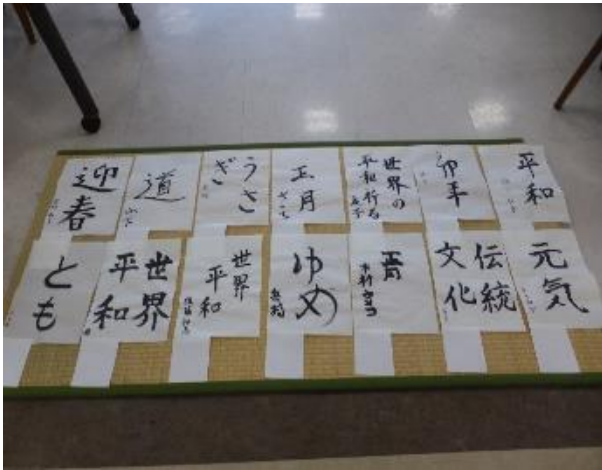 迎春
道
うさ
ぎ
正月
世界の
平和祈る
卯年
平和
とも
世界
平和
世界
平和
ゆめ
伝統
文化
元気